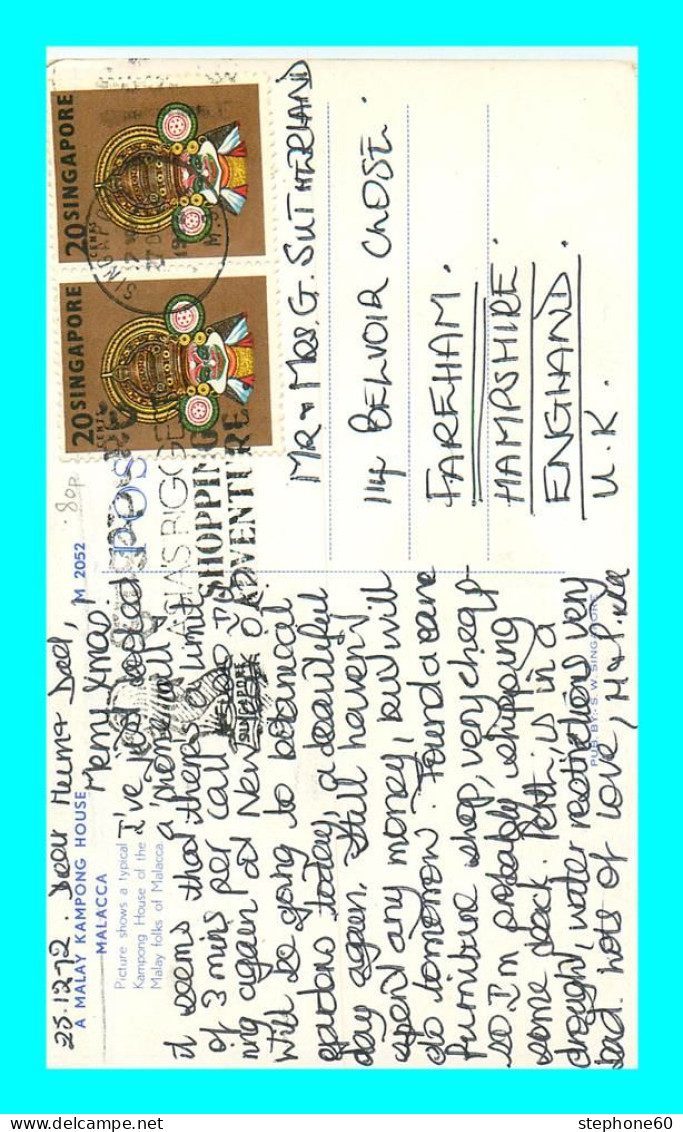 25.12.72. Dear Mum & Dad,
Merry Xmas!
I've just booked
a 'phone call,
it seems that theres a limit
of 3 mins per call so I'll
ring again at New Year.
Will be going to botanical
gardens today, a beautiful
day again. Still haven't
spent any money, but will
do tomorrow. Found a cane
furniture shop, very cheap
so I'm probably shipping
some back. Perth is in a
drought, water restrictions very
bad. Lots of love,
A MALAY KAMPONG HOUSE
MALACCA
Picture shows a typical
Kampong House of the
Malay folks of Malacca.
M 2052
80p
POS
PUB. BY:- S. W. SINGAPORE
20 CENTS SINGAPORE
20 CENTS SINGAPORE
SINGAPO
27 D
ASIA'S BIGGE
SHOPPING
ADVENTURE
SINGAPORE
MR & MRS. G. SUTHERLAND
114 BELVOIR CLOSE.
FAREHAM.
HAMPSHIRE.
ENGLAND.
U.K.
stephone60